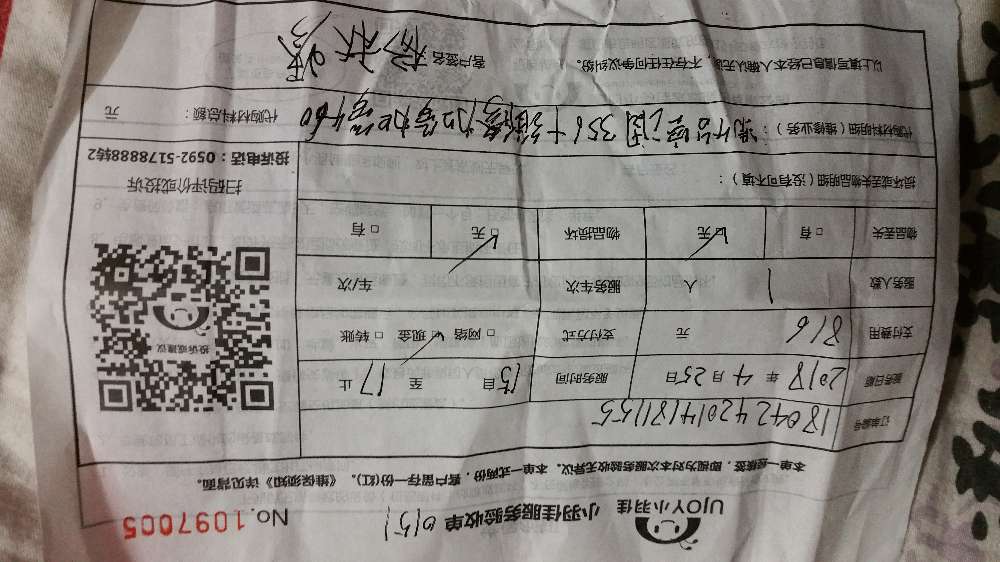 UJOY小羽佳 小羽佳服务验收单 0151 No.1097005
本单一经接签,即视为对本次服务验收无异议。本单一式两份,客户留存一份(红)。《维保须知》详见背面。
订单编号 18042420141871155
服务日期 2018年4月25日 服务时间 15自至17止
支付费用 816元 支付方式 □网络 ☑现金 □转账
服务人数 1人 服务车次 车/次
物品丢失 □有 ☑无 物品损坏 ☑无 □有
损坏或丢失物品明细(没有可不填):
代购材料明细(维修业务): 356+ 460
代购材料总额: 元
以上填写信息已经本人确认无误,不存在任何争议纠纷。 客户签名
投诉或建议
扫码评价或投诉
投诉电话:0592-5178888转2